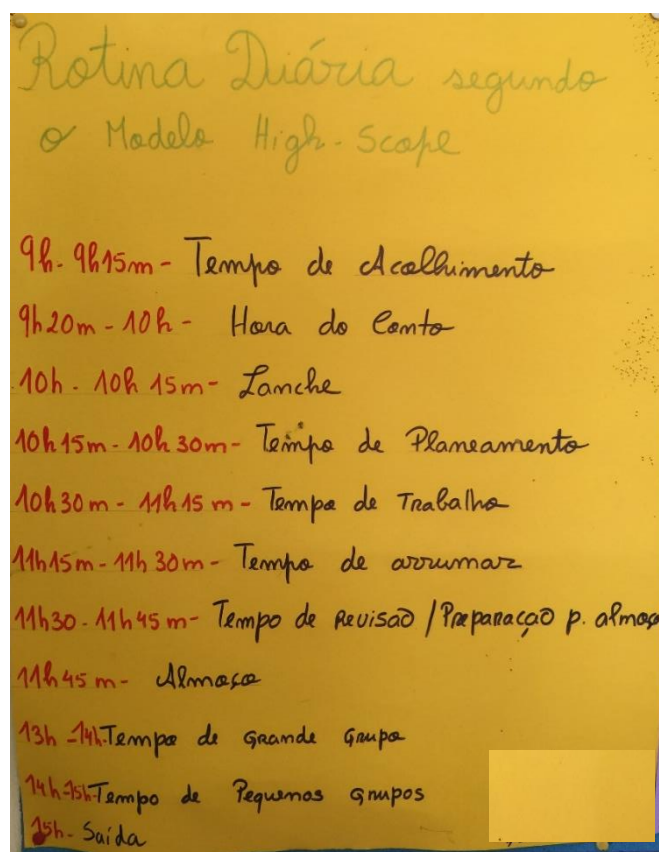 Rotina Diária segundo
o Modelo High-Scope
9h-9h15m- Tempo de Acolhimento
9h20m-10h- Hora do Conto
10h-10h15m- Lanche
10h15m-10h30m- Tempo de Planeamento
10h30m-11h15m- Tempo de Trabalho
11h15m-11h30m- Tempo de arrumar
11h30-11h45m- Tempo de Revisão/Preparação p. almoço
11h45m- Almoço
13h-14h-Tempo de Grande Grupo
14h-15h-Tempo de Pequenos Grupos
15h- Saída